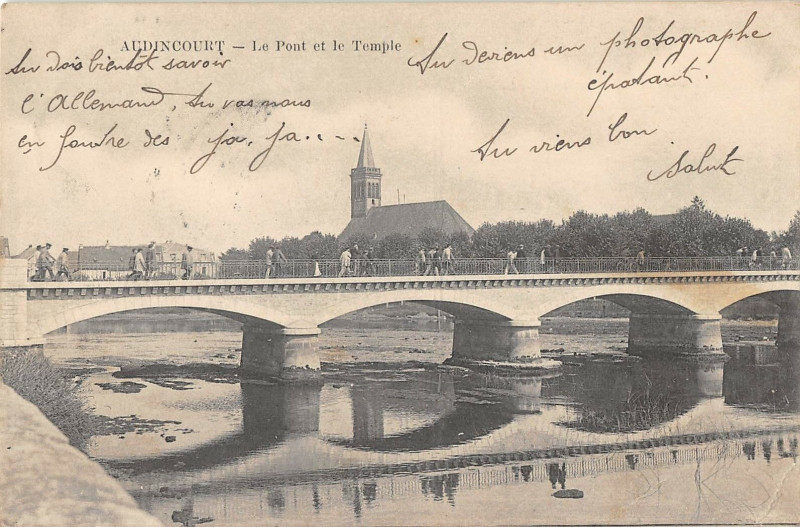 AUDINCOURT — Le Pont et le Temple
tu dois bientôt savoir
l'Allemand, tu vas nous
en foudre des ja, ja.....
tu deviens un photographe
épatant.
tu viens bon
Salut